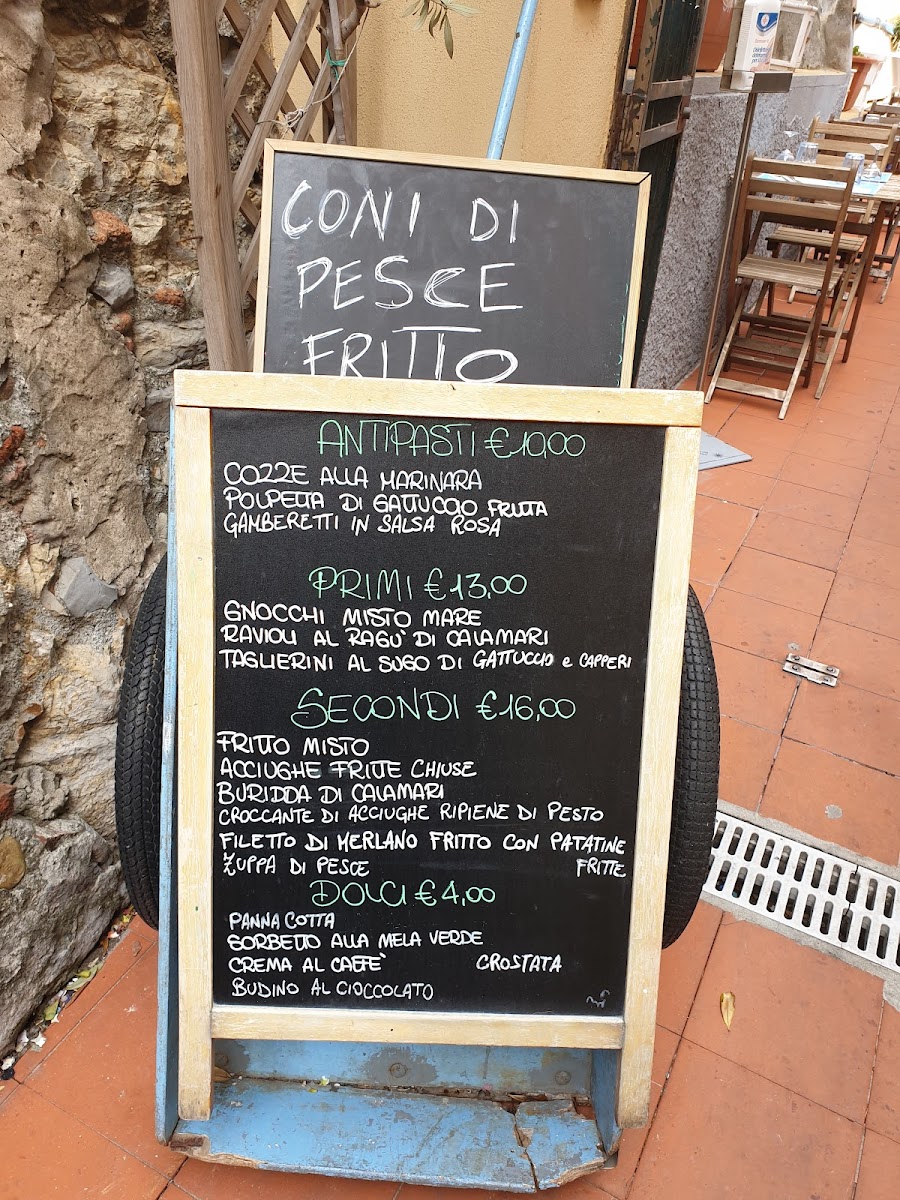 CONI DI
PESCE
FRITTO
ANTIPASTI €10,00
COZZE ALLA MARINARA
POLPETTA DI GATTUCCIO FRITTA
GAMBERETTI IN SALSA ROSA
PRIMI €13,00
GNOCCHI MISTO MARE
RAVIOLI AL RAGU' DI CALAMARI
TAGLIERINI AL SUGO DI GATTUCCIO e CAPPERI
SECONDI €16,00
FRITTO MISTO
ACCIUGHE FRITTE CHIUSE
BURIDDA DI CALAMARI
CROCCANTE DI ACCIUGHE RIPIENE DI PESTO
FILETTO DI MERLANO FRITTO CON PATATINE
ZUPPA DI PESCE FRITTE
DOLCI €4,00
PANNA COTTA
SORBETTO ALLA MELA VERDE
CREMA AL CAFFE' CROSTATA
BUDINO AL CIOCCOLATO